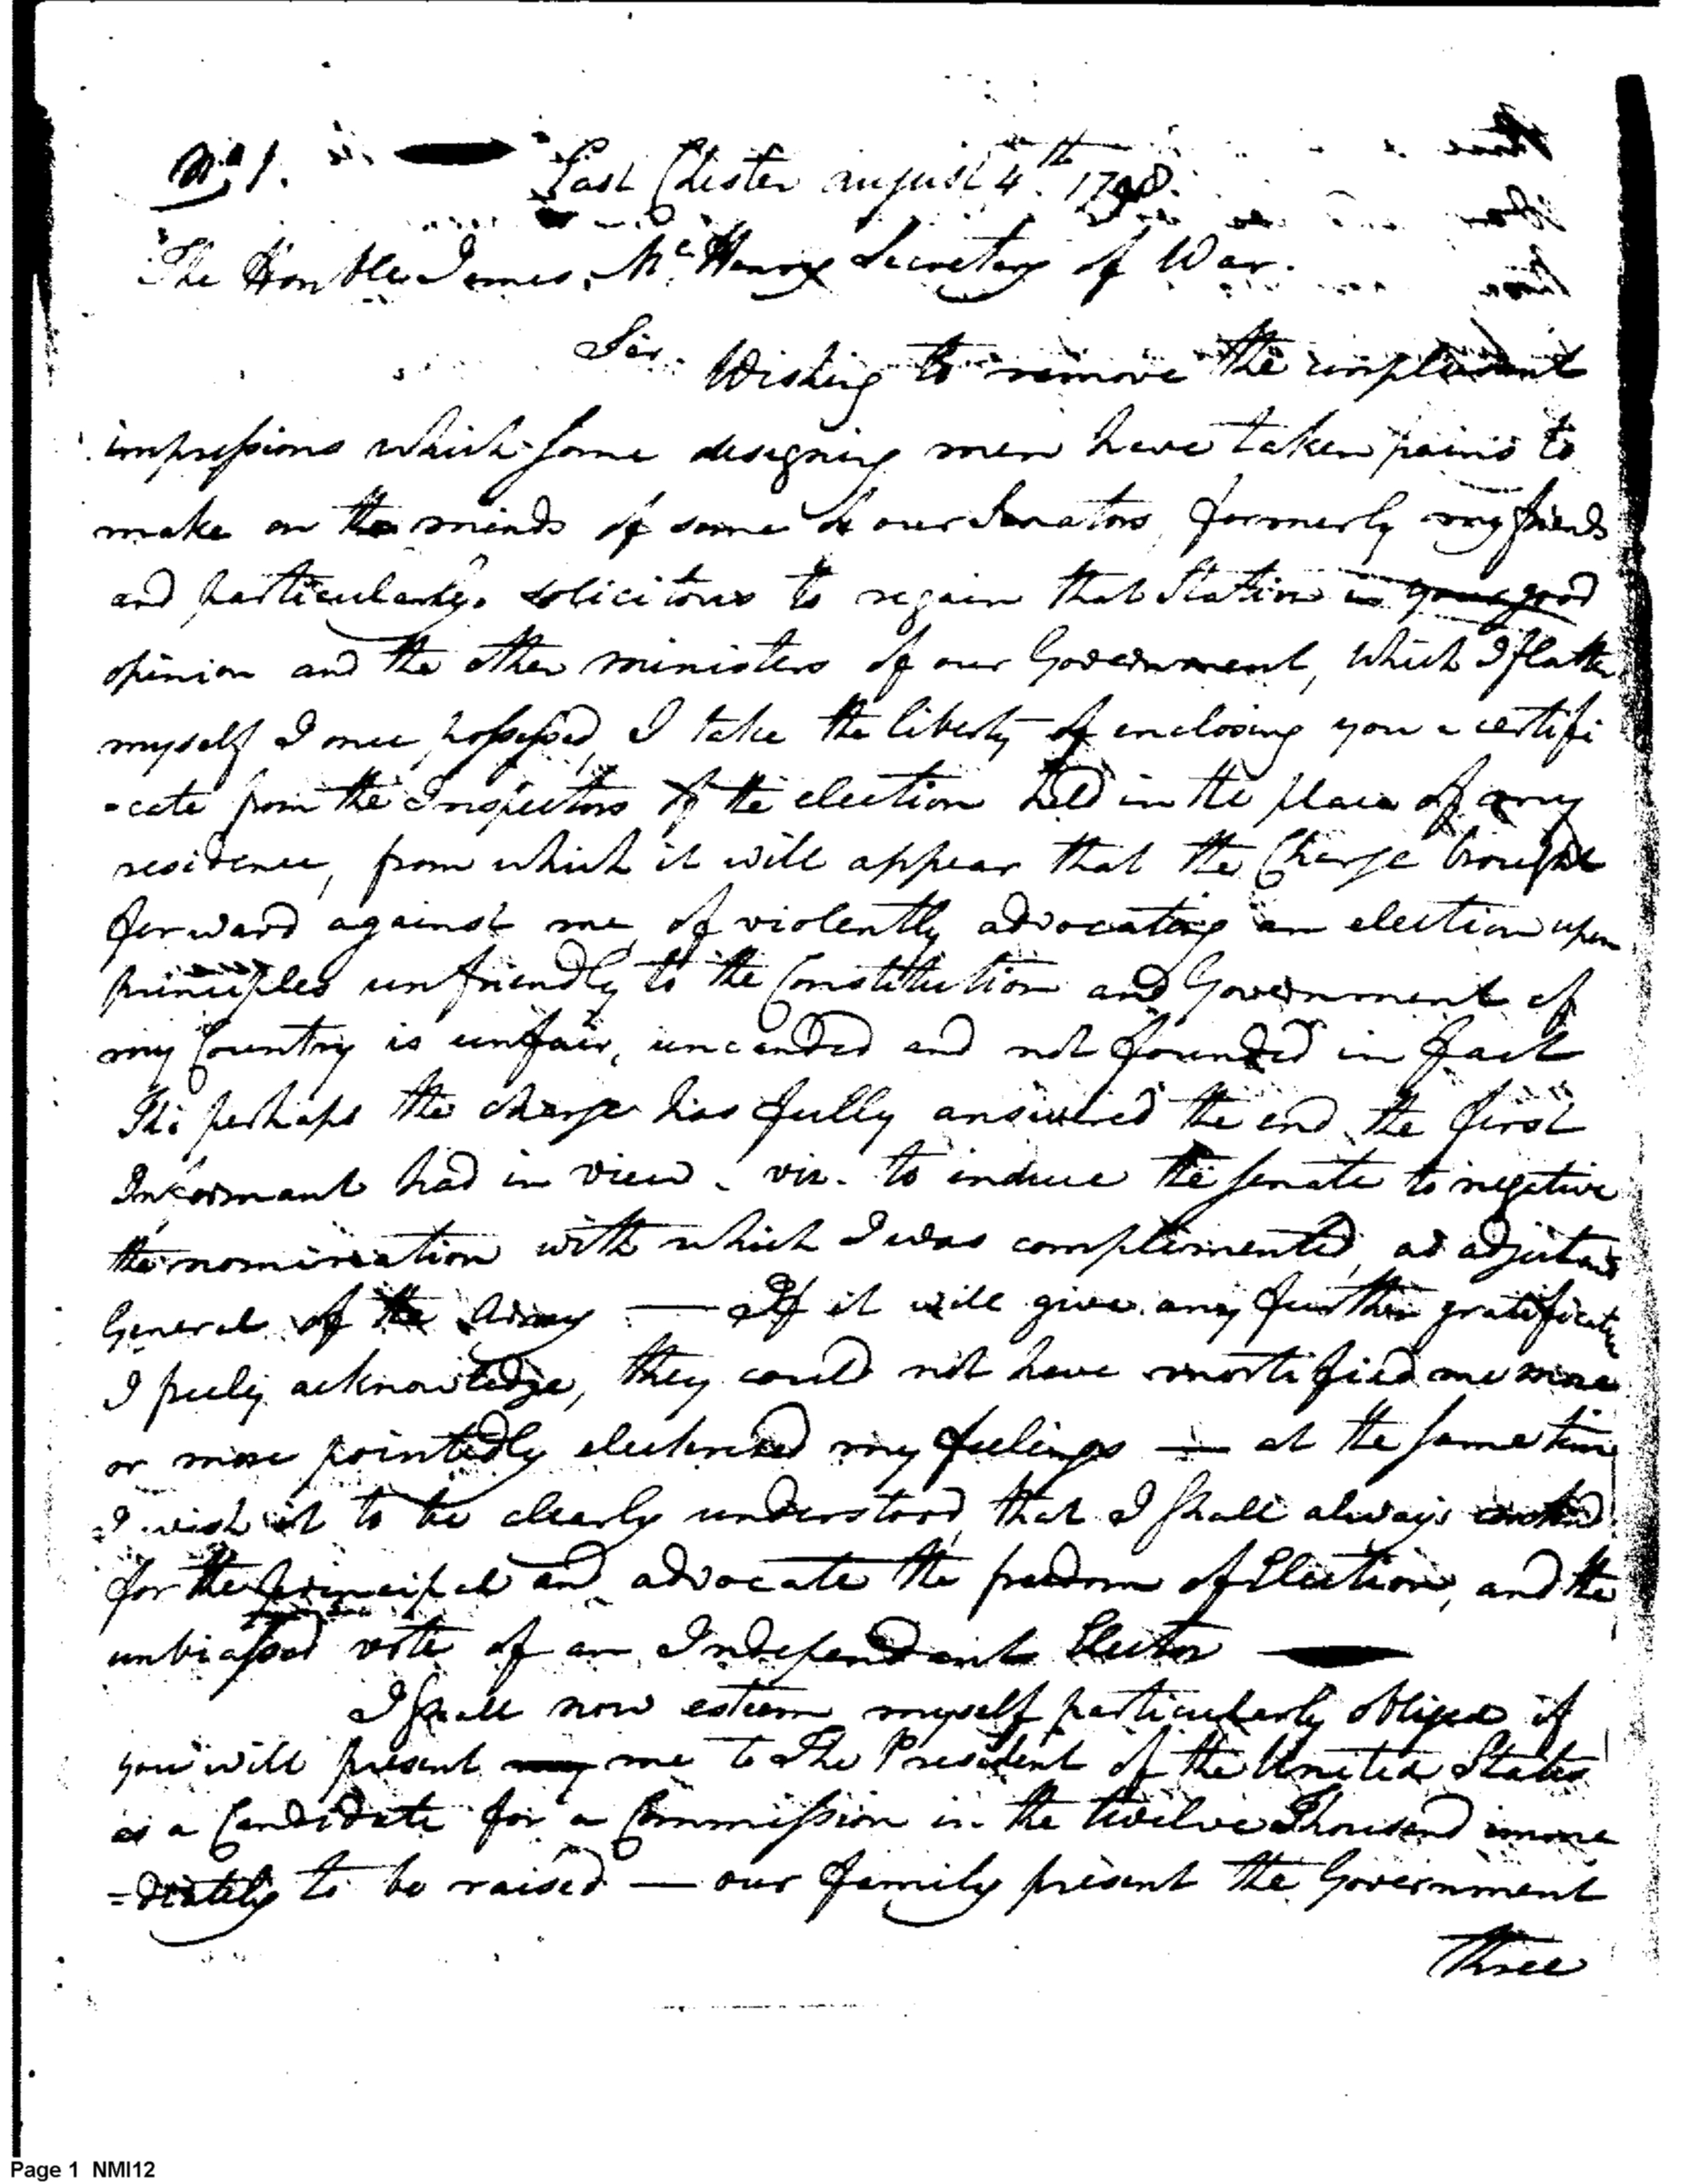 No 1.
East Chester august 4th. 1798.
The Honble James McHenry Secretary of War.
Sir. Wishing to remove the unpleasant
impressions which some designing men have taken pains to
make on the minds of some of our Senators, formerly my friends
and particularly solicitous to regain that Station in your good
opinion and the other ministers of our Government, which I flatter
myself I once possessed, I take the liberty of enclosing you a certifi
-cate from the Inspectors of the election held in the place of my
residence, from which it will appear that the Charge brought
forward against me of violently advocating an election upon
principles unfriendly to the Constitution and Government of
my Country is unfair, uncandid and not founded in fact
Tho perhaps the charge has fully answered the end the first
Informant had in view - viz. to induce the senate to negative
the nomination with which I was complimented, as adjutant
General of the Army — If it will give any further gratification
I freely acknowledge, they could not have mortified me more
or more pointedly my feelings — at the same time
I wish it to be clearly understood, that I shall always contend
for the principal and advocate the freedom of Election, and the
unbiassed vote of an Independant Elector —
I shall now esteem myself particularly obliged if
you will present my me to The President of the United States
as a Candidate for a Commission in the twelve Thousand imme
=diately to be raised — our family present the Government
Three
Page 1 NMI12